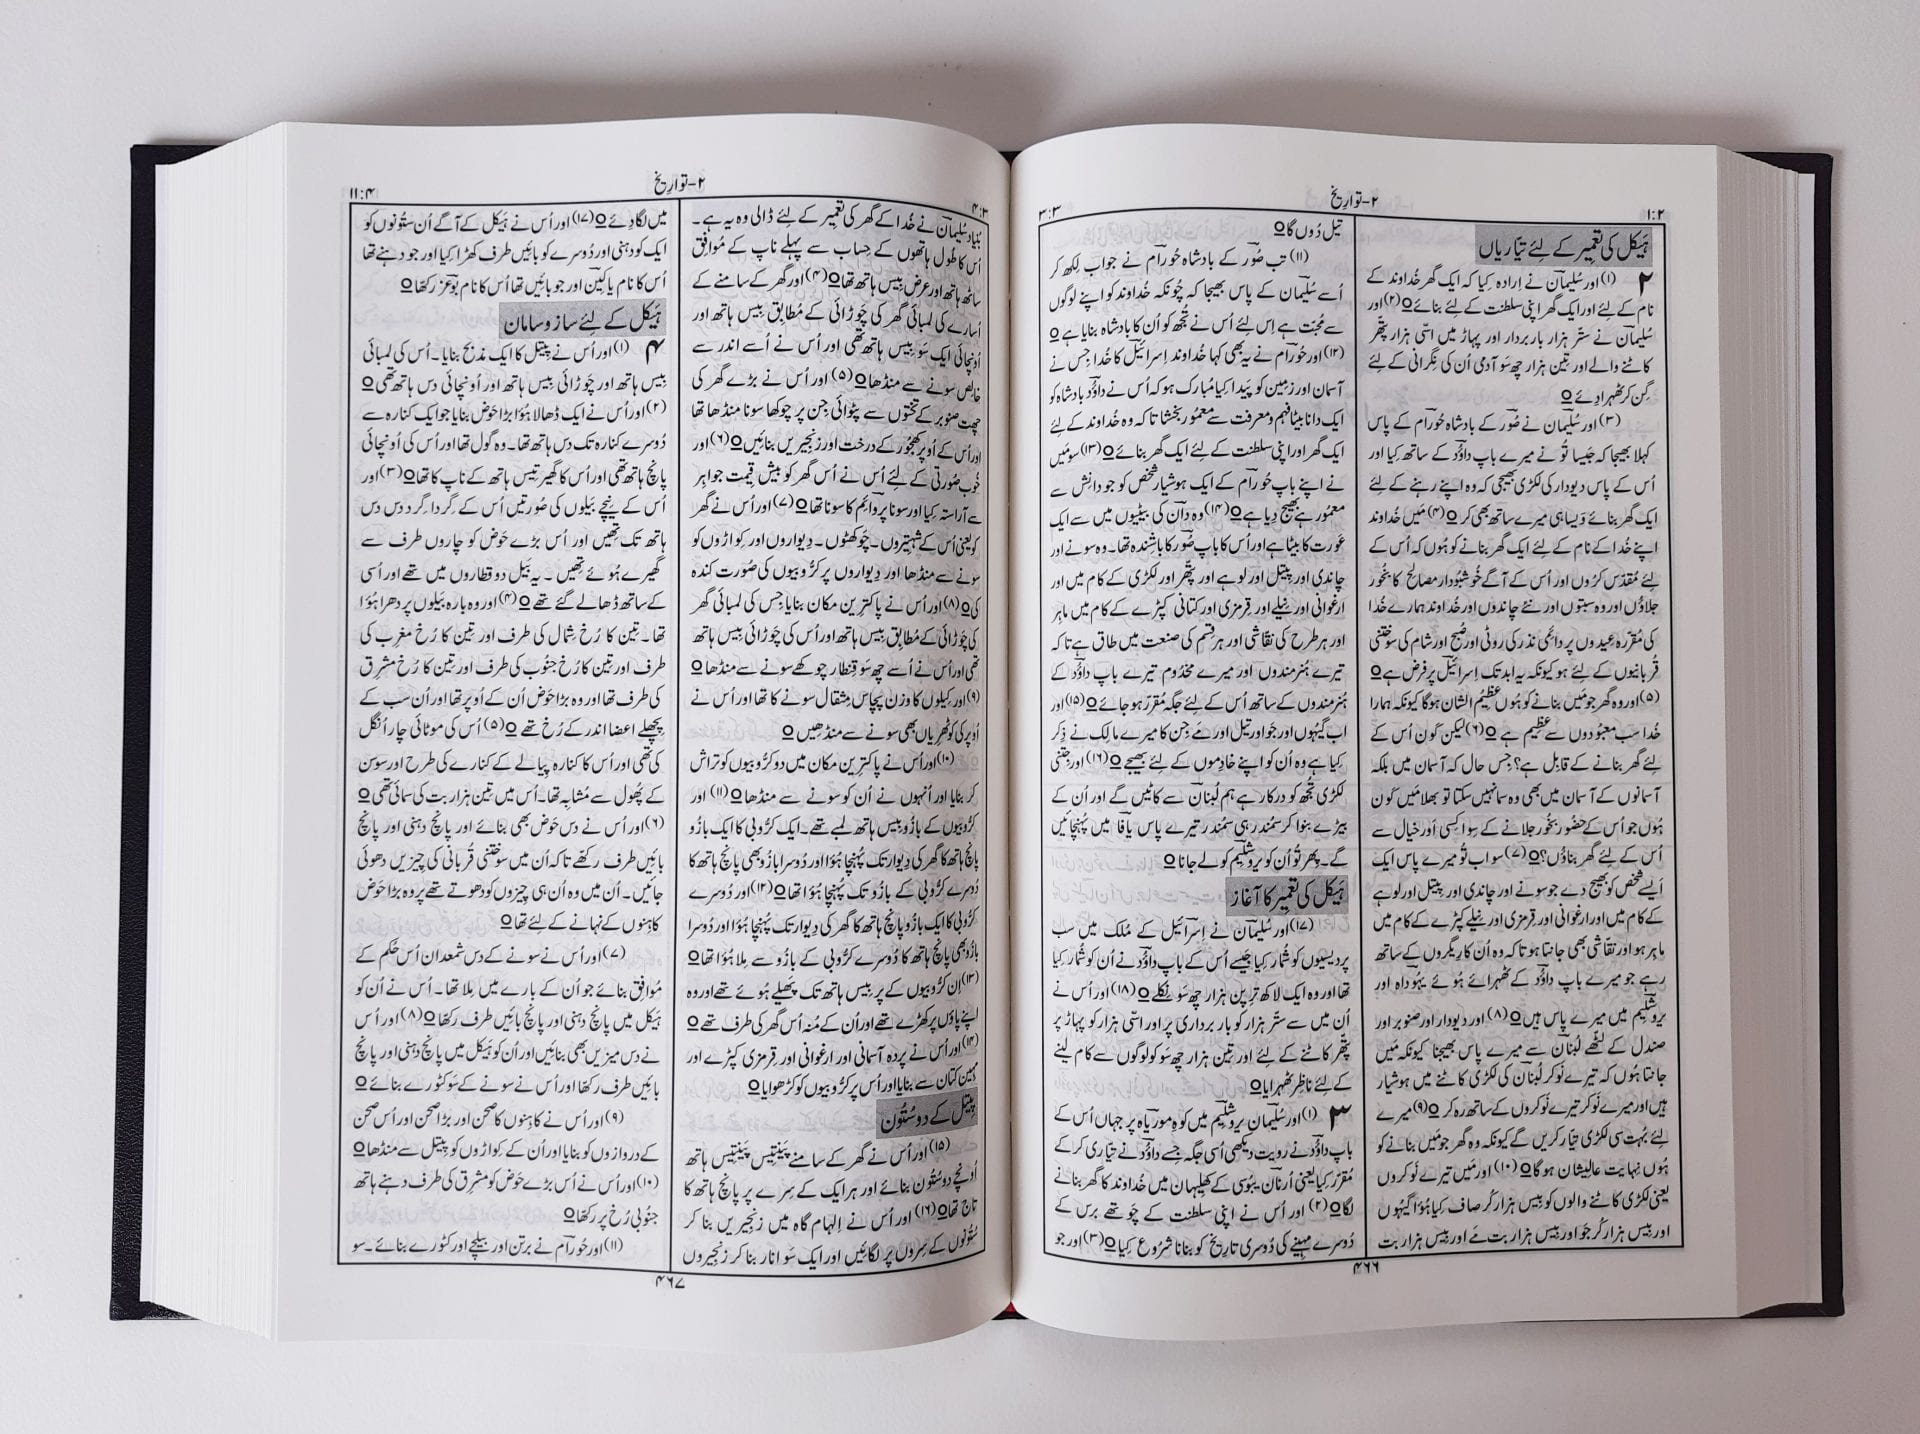 ۱:۲
۲-توارِیخ
۳:۳
ہَیکل کی تعمِیر کے لِئے تیّاریاں
۲ (۱) اور سُلیماؔن نے اِرادہ کِیا کہ ایک گھر خُداوند کے
نام کے لِئے اور ایک گھر اپنی سلطنت کے لِئے بنائے o (۲) اور
سُلیماؔن نے ستّر ہزار باربردار اور پہاڑ میں اسّی ہزار پتّھر
کاٹنے والے اور تِین ہزار چھ سَو آدمی اُن کی نِگرانی کے لِئے
گِن کر ٹھہرا دِئے o
(۳) اور سُلیماؔن نے صُور کے بادشاہ حُورؔام کے پاس
کہلا بھیجا کہ جَیسا تُو نے میرے باپ داؤُد کے ساتھ کِیا اور
اُس کے پاس دیودار کی لکڑی بھیجی کہ وہ اپنے رہنے کے لِئے
ایک گھر بنائے وَیسا ہی میرے ساتھ بھی کر o (۴) مَیں خُداوند
اپنے خُدا کے نام کے لِئے ایک گھر بنانے کو ہُوں کہ اُس کے
لِئے مُقدّس کرُوں اور اُس کے آگے خُوشبُودار مصالِح کا بخُور
جلاؤُں اور وہ سبتوں اور نئے چاندوں اور خُداوند ہمارے خُدا
کی مُقرّرہ عِیدوں پر دائمی نذر کی روٹی اور صُبح اور شام کی سوختنی
قُربانیوں کے لِئے ہو کیونکہ یہ ابد تک اِسرائیلؔ پر فرض ہے o
(۵) اور وہ گھر جو مَیں بنانے کو ہُوں عظِیمُ الشان ہو گا کیونکہ ہمارا
خُدا سب معبُودوں سے عظِیم ہے o (۶) لیکن کَون اُس کے
لِئے گھر بنانے کے قابِل ہے؟ جِس حال کہ آسمان میں بلکہ
آسمانوں کے آسمان میں بھی وہ سما نہیں سکتا تو بھلا مَیں کَون
ہُوں جو اُس کے حضُور بخُور جلانے کے سِوا کِسی اَور خیال سے
اُس کے لِئے گھر بناؤُں؟ o (۷) سو اب تُو میرے پاس ایک
اَیسے شخص کو بھیج دے جو سونے اور چاندی اور پِیتل اور لوہے
کے کام میں اور ارغوانی اور قِرمزی اور نِیلے کپڑے کے کام میں
ماہِر ہو اور نقّاشی بھی جانتا ہو تاکہ وہ اُن کارِیگروں کے ساتھ
رہے جو میرے باپ داؤُد کے ٹھہرائے ہُوئے یہُوداہ اور
یروشلیِم میں میرے پاس ہیں o (۸) اور دیودار اور صنوبر اور
صندل کے لٹّھے لُبنان سے میرے پاس بھیجنا کیونکہ مَیں
جانتا ہُوں کہ تیرے نَوکر لُبنان کی لکڑی کاٹنے میں ہوشیار
ہیں اور میرے نَوکر تیرے نَوکروں کے ساتھ رہ کر o (۹) میرے
لِئے بُہت سی لکڑی تیّار کریں گے کیونکہ وہ گھر جو مَیں بنانے کو
ہُوں نِہایت عالِیشان ہو گا o (۱۰) اور مَیں تیرے نَوکروں
یعنی لکڑی کاٹنے والوں کو بِیس ہزار کُر صاف کِیا ہُؤا گیہُوں
اور بِیس ہزار کُر جَو اور بِیس ہزار بت مَے اور بِیس ہزار بت
تیل دُوں گا o
(۱۱) تب صُور کے بادشاہ حُورؔام نے جواب لِکھ کر
اُسے سُلیماؔن کے پاس بھیجا کہ چُونکہ خُداوند کو اپنے لوگوں
سے مُحبّت ہے اِس لِئے اُس نے تُجھ کو اُن کا بادشاہ بنایا ہے o
(۱۲) اور حُورؔام نے یہ بھی کہا خُداوند اِسرائیلؔ کا خُدا جِس نے
آسمان اور زمِین کو پَیدا کِیا مُبارک ہو کہ اُس نے داؤُد بادشاہ کو
ایک دانا بیٹا فہم و معرفت سے معمُور بخشا تاکہ وہ خُداوند کے لِئے
ایک گھر اور اپنی سلطنت کے لِئے ایک گھر بنائے o (۱۳) سو مَیں
نے اپنے باپ حُورؔام کے ایک ہوشیار شخص کو جو دانِش سے
معمُور ہے بھیج دِیا ہے o (۱۴) وہ دان کی بیٹیوں میں سے ایک
عَورت کا بیٹا ہے اور اُس کا باپ صُور کا باشِندہ تھا۔ وہ سونے اور
چاندی اور پِیتل اور لوہے اور پتّھر اور لکڑی کے کام میں اور
ارغوانی اور نِیلے اور قِرمزی اور کتانی کپڑے کے کام میں ماہِر
اور ہر طرح کی نقّاشی اور ہر قِسم کی صنعت میں طاق ہے تاکہ
تیرے ہُنرمندوں اور میرے مخدُوم تیرے باپ داؤُد کے
ہُنرمندوں کے ساتھ اُس کے لِئے جگہ مُقرّر ہو جائے o (۱۵) اور
اب گیہُوں اور جَو اور تیل اور مَے جِن کا میرے مالِک نے ذِکر
کِیا ہے وہ اُن کو اپنے خادِموں کے لِئے بھیجے o (۱۶) اور جِتنی
لکڑی تُجھ کو درکار ہے ہم لُبنان سے کاٹیں گے اور اُن کے
بیڑے بنوا کر سمُندر ہی سمُندر تیرے پاس یافا میں پُہنچائیں
گے۔ پِھر تُو اُن کو یروشلیِم کو لے جانا o
ہَیکل کی تعمِیر کا آغاز
(۱۷) اور سُلیماؔن نے اِسرائیل کے مُلک میں سب
پردیسیوں کو شُمار کِیا جَیسے اُس کے باپ داؤُد نے اُن کو شُمار کِیا
تھا اور وہ ایک لاکھ ترِپن ہزار چھ سَو نِکلے o (۱۸) اور اُس نے
اُن میں سے ستّر ہزار کو باربرداری پر اور اسّی ہزار کو پہاڑ پر
پتّھر کاٹنے کے لِئے اور تِین ہزار چھ سَو کو لوگوں سے کام لینے
کے لِئے ناظِر ٹھہرایا o
۳ (۱) اور سُلیماؔن یروشلیِم میں کوہِ موریاہ پر جہاں اُس کے
باپ داؤُد نے رویت دیکھی اُسی جگہ جِسے داؤُد نے تیّاری کر کے
مُقرّر کِیا یعنی اُرنان یبُوسی کے کھلیہان میں خُداوند کا گھر بنانے
لگا o (۲) اور اُس نے اپنی سلطنت کے چَوتھے برس کے
دُوسرے مہِینے کی دُوسری تارِیخ کو بنانا شرُوع کِیا o (۳) اور جو
۴۶۶
۴:۳
۲-توارِیخ
۱۱:۴
بُنیاد سُلیماؔن نے خُدا کے گھر کی تعمِیر کے لِئے ڈالی وہ یہ ہے۔
اُس کا طُول ہاتھوں کے حِساب سے پہلے ناپ کے مُوافِق
ساٹھ ہاتھ اور عرض بِیس ہاتھ تھا o (۴) اور گھر کے سامنے کے
اُسارے کی لمبائی گھر کی چَوڑائی کے مُطابِق بِیس ہاتھ اور
اُونچائی ایک سَو بِیس ہاتھ تھی اور اُس نے اُسے اندر سے
خالِص سونے سے منڈھا o (۵) اور اُس نے بڑے گھر کی
چھت صنوبر کے تختوں سے پٹوائی جِن پر چوکھا سونا منڈھا تھا
اور اُس کے اُوپر کھجُور کے درخت اور زنجِیریں بنائیں o (۶) اور
خُوب صُورتی کے لِئے اُس نے اُس گھر کو بیش قِیمت جواہِر
سے آراستہ کِیا اور سونا پروائِم کا سونا تھا o (۷) اور اُس نے گھر
کو یعنی اُس کے شہتِیروں۔ چَوکھٹوں۔ دِیواروں اور کِواڑوں کو
سونے سے منڈھا اور دِیواروں پر کرُّوبیوں کی صُورت کندہ
کی o (۸) اور اُس نے پاکترِین مکان بنایا جِس کی لمبائی گھر
کی چَوڑائی کے مُطابِق بِیس ہاتھ اور اُس کی چَوڑائی بِیس ہاتھ
تھی اور اُس نے اُسے چھ سَو قِنطار چوکھے سونے سے منڈھا o
(۹) اور کِیلوں کا وزن پچاس مِثقال سونے کا تھا اور اُس نے
اُوپر کی کوٹھریاں بھی سونے سے منڈھیں o
(۱۰) اور اُس نے پاکترِین مکان میں دو کرُّوبیوں کو تراش
کر بنایا اور اُنہوں نے اُن کو سونے سے منڈھا o (۱۱) اور
کرُّوبیوں کے بازُو بِیس ہاتھ لمبے تھے۔ ایک کرُّوبی کا ایک بازُو
پانچ ہاتھ کا گھر کی دِیوار تک پُہنچا ہُؤا اور دُوسرا بازُو بھی پانچ ہاتھ کا
دُوسرے کرُّوبی کے بازُو تک پُہنچا ہُؤا تھا o (۱۲) اور دُوسرے
کرُّوبی کا ایک بازُو پانچ ہاتھ کا گھر کی دِیوار تک پُہنچا ہُؤا اور دُوسرا
بازُو بھی پانچ ہاتھ کا دُوسرے کرُّوبی کے بازُو سے مِلا ہُؤا تھا o
(۱۳) اِن کرُّوبیوں کے پر بِیس ہاتھ تک پَھیلے ہُوئے تھے اور وہ
اپنے پاؤں پر کھڑے تھے اور اُن کے مُنہ اُس گھر کی طرف تھے o
(۱۴) اور اُس نے پردہ آسمانی اور ارغوانی اور قِرمزی کپڑے اور
مہِین کتان سے بنایا اور اُس پر کرُّوبیوں کو کڑھوایا o
پِیتل کے دو سُتُون
(۱۵) اور اُس نے گھر کے سامنے پَینتِیس پَینتِیس ہاتھ
اُونچے دو سُتُون بنائے اور ہر ایک کے سِرے پر پانچ ہاتھ کا
تاج تھا o (۱۶) اور اُس نے اِلہام گاہ میں زنجِیریں بنا کر
سُتُونوں کے سِروں پر لگائیں اور ایک سَو انار بنا کر زنجِیروں
میں لگا دِئے o (۱۷) اور اُس نے ہَیکل کے آگے اُن سُتُونوں کو
ایک کو دہنی اور دُوسرے کو بائیں طرف کھڑا کِیا اور جو دہنے تھا
اُس کا نام یاکِین اور جو بائیں تھا اُس کا نام بوعز رکھّا o
ہَیکل کے لِئے ساز و سامان
۴ (۱) اور اُس نے پِیتل کا ایک مذبح بنایا۔ اُس کی لمبائی
بِیس ہاتھ اور چَوڑائی بِیس ہاتھ اور اُونچائی دس ہاتھ تھی o
(۲) اور اُس نے ایک ڈھالا ہُؤا بڑا حَوض بنایا جو ایک کنارہ سے
دُوسرے کنارہ تک دس ہاتھ تھا۔ وہ گول تھا اور اُس کی اُونچائی
پانچ ہاتھ تھی اور اُس کا گھیر تِیس ہاتھ کے ناپ کا تھا o (۳) اور
اُس کے نِیچے بَیلوں کی صُورتیں اُس کے گِرداگِرد دس دس
ہاتھ تک تِھیں اور اُس بڑے حَوض کو چاروں طرف سے
گھیرے ہُوئے تِھیں۔ یہ بَیل دو قطاروں میں تھے اور اُسی
کے ساتھ ڈھالے گئے تھے o (۴) اور وہ بارہ بَیلوں پر دھرا ہُؤا
تھا۔ تِین کا رُخ شِمال کی طرف اور تِین کا رُخ مغرِب کی
طرف اور تِین کا رُخ جنُوب کی طرف اور تِین کا رُخ مشرِق
کی طرف تھا اور وہ بڑا حَوض اُن کے اُوپر تھا اور اُن سب کے
پِچھلے اعضا اندر کے رُخ تھے o (۵) اُس کی موٹائی چار اُنگل
کی تھی اور اُس کا کنارہ پیالے کے کنارے کی طرح اور سوسن
کے پُھول سے مُشابِہ تھا۔ اُس میں تِین ہزار بت کی سمائی تھی o
(۶) اور اُس نے دس حَوض بھی بنائے اور پانچ دہنی اور پانچ
بائیں طرف رکھّے تاکہ اُن میں سوختنی قُربانی کی چِیزیں دھوئی
جائیں۔ اُن میں وہ اُن ہی چِیزوں کو دھوتے تھے پر وہ بڑا حَوض
کاہِنوں کے نہانے کے لِئے تھا o
(۷) اور اُس نے سونے کے دس شمعدان اُس حُکم کے
مُوافِق بنائے جو اُن کے بارے میں مِلا تھا۔ اُس نے اُن کو
ہَیکل میں پانچ دہنی اور پانچ بائیں طرف رکھّا o (۸) اور اُس
نے دس میزیں بھی بنائیں اور اُن کو ہَیکل میں پانچ دہنی اور پانچ
بائیں طرف رکھّا اور اُس نے سونے کے سَو کٹورے بنائے o
(۹) اور اُس نے کاہِنوں کا صحن اور بڑا صحن اور اُس صحن
کے دروازوں کو بنایا اور اُن کے کِواڑوں کو پِیتل سے منڈھا o
(۱۰) اور اُس نے اُس بڑے حَوض کو مشرِق کی طرف دہنے ہاتھ
جنُوبی رُخ پر رکھّا o
(۱۱) اور حُورؔام نے برتن اور بیلچے اور کٹورے بنائے۔ سو
۴۶۷